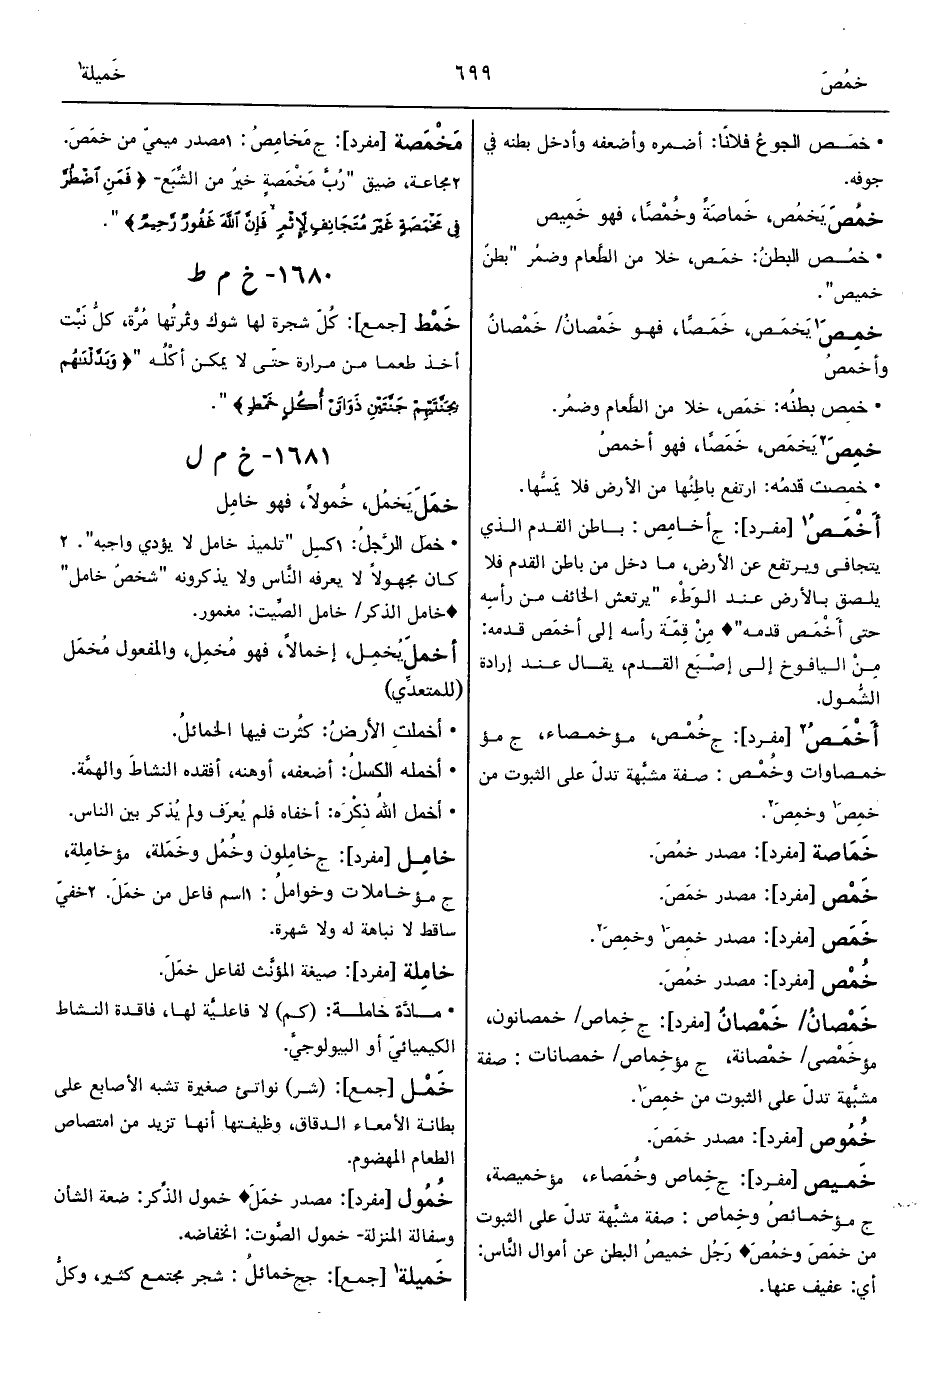 خمُصَ
٦٩٩
خَميلة١
• خمَـص الجوعُ فلانًا: أضمره وأضعفه وأدخل بطنه في
جوفه.
خمُصَ يَخمُص، خَماصَةً وخُمْصًا، فهو خَمِيص
• خمُـص البطنُ: خمَص، خلا من الطَّعام وضمُر "بطنٌ
خميص".
خمِصَ١ يَخمَص، خَمَصًا، فهو خَمْصانُ/ خَمْصانٌ
وأخمصُ
• خمِص بطنُه: خمَص، خلا من الطَّعام وضمُر.
خمِصَ٢ يَخمَص، خَمَصًا، فهو أخمصُ
• خمِصت قدمُه: ارتفع باطنُها من الأرض فلا يَمسُّها.
أَخْمَصُ١ [مفرد]: ج أخامِص : باطن القدم الذي
يتجافى ويرتفع عن الأرض، ما دخل من باطن القدم فلا
يلصق بالأرض عند الوَطْء "يرتعش الخائف من رأسِه
حتى أَخْمَص قدمه"♦ مِنْ قِمَّة رأسه إلى أخمَص قدمه:
مِنْ اليافوخ إلى إصْبَع القدم، يقال عند إرادة
الشُّمول.
أَخْمَصُ٢ [مفرد]: ج خُمْص، مؤ خمصاء، ج مؤ
خمصاوات وخُمْص : صفة مشبَّهة تدلّ على الثبوت من
خمِصَ١ وخمِصَ٢.
خَمَاصة [مفرد]: مصدر خمُصَ.
خَمْص [مفرد]: مصدر خمَصَ.
خَمَص [مفرد]: مصدر خمِصَ١ وخمِصَ٢.
خُمْص [مفرد]: مصدر خمُصَ.
خَمْصانُ/ خَمْصانٌ [مفرد]: ج خِماص/ خمصانون،
مؤ خَمْصى/ خمْصانة، ج مؤ خِماص/ خمصانات : صفة
مشبَّهة تدلّ على الثبوت من خمِصَ١.
خُمُوص [مفرد]: مصدر خمَصَ.
خَمِيص [مفرد]: ج خِماص وخُمَصاء، مؤ خميصة،
ج مؤ خمائصُ وخِماص : صفة مشبَّهة تدلّ على الثبوت
من خمَصَ وخمُصَ♦ رَجُل خميصُ البطن عن أموال النَّاس:
أي: عفيف عنها.
مَخْمَصة [مفرد]: ج مَخامِصُ: ١مصدر ميميّ من خمَصَ.
٢مجاعة، ضيق "رُبَّ مَخْمَصَةٍ خيرٌ من الشِّبَع- ﴿ فَمَنِ اضْطُرَّ
فِي مَخْمَصَةٍ غَيْرَ مُتَجَانِفٍ لِإِثْمٍ فَإِنَّ ٱللَّهَ غَفُورٌ رَّحِيمٌ﴾ ".
١٦٨٠- خ م ط
خَمْط [جمع]: كُلّ شجرة لها شوك وثمرتُها مُرَّة، كلّ نَبْت
أخذ طعما من مرارة حتَّى لا يمكن أكْلُه "﴿ وَبَدَّلْنَاهُم
بِجَنَّتَيْهِمْ جَنَّتَيْنِ ذَوَاتَىْ أُكُلٍ خَمْطٍ﴾ ".
١٦٨١- خ م ل
خمَلَ يَخمُل، خُمولاً، فهو خامِل
• خمَل الرَّجلُ: ١كسِل "تلميذ خامل لا يؤدي واجبه". ٢
كان مجهولاً لا يعرفه النَّاس ولا يذكرونه "شخصٌ خامل"
♦خامل الذكر/ خامل الصِّيت: مغمور.
أخملَ يُخمِل، إخمالاً، فهو مُخمِل، والمفعول مُخمَل
(للمتعدِّي)
• أخملتِ الأرضُ: كثُرت فيها الخمائلُ.
• أخمله الكسلُ: أضعفه، أوهنه، أفقده النشاطَ والهمَّة.
• أخمل اللهُ ذِكْرَه: أخفاه فلم يُعرَف ولم يُذكر بين الناس.
خامِل [مفرد]: ج خامِلون وخُمُل وخَمَلة، مؤ خامِلة،
ج مؤ خاملات وخواملُ : ١اسم فاعل من خمَلَ. ٢خفيّ
ساقط لا نباهة له ولا شهرة.
خامِلة [مفرد]: صيغة المؤنَّث لفاعل خمَلَ.
• مادَّة خاملة: (كم) لا فاعليَّة لها، فاقدة النشاط
الكيميائيّ أو البيولوجيّ.
خَمْل [جمع]: (شر) نواتئ صغيرة تشبه الأصابع على
بطانة الأمعاء الدقاق، وظيفتها أنها تزيد من امتصاص
الطعام المهضوم.
خُمُول [مفرد]: مصدر خمَلَ♦ خمول الذِّكر: ضعة الشأن
وسفالة المنزلة- خمول الصَّوت: انخفاضه.
خَمِيلة١ [جمع]: جج خمائلُ : شجر مجتمع كثير، وكلُّ